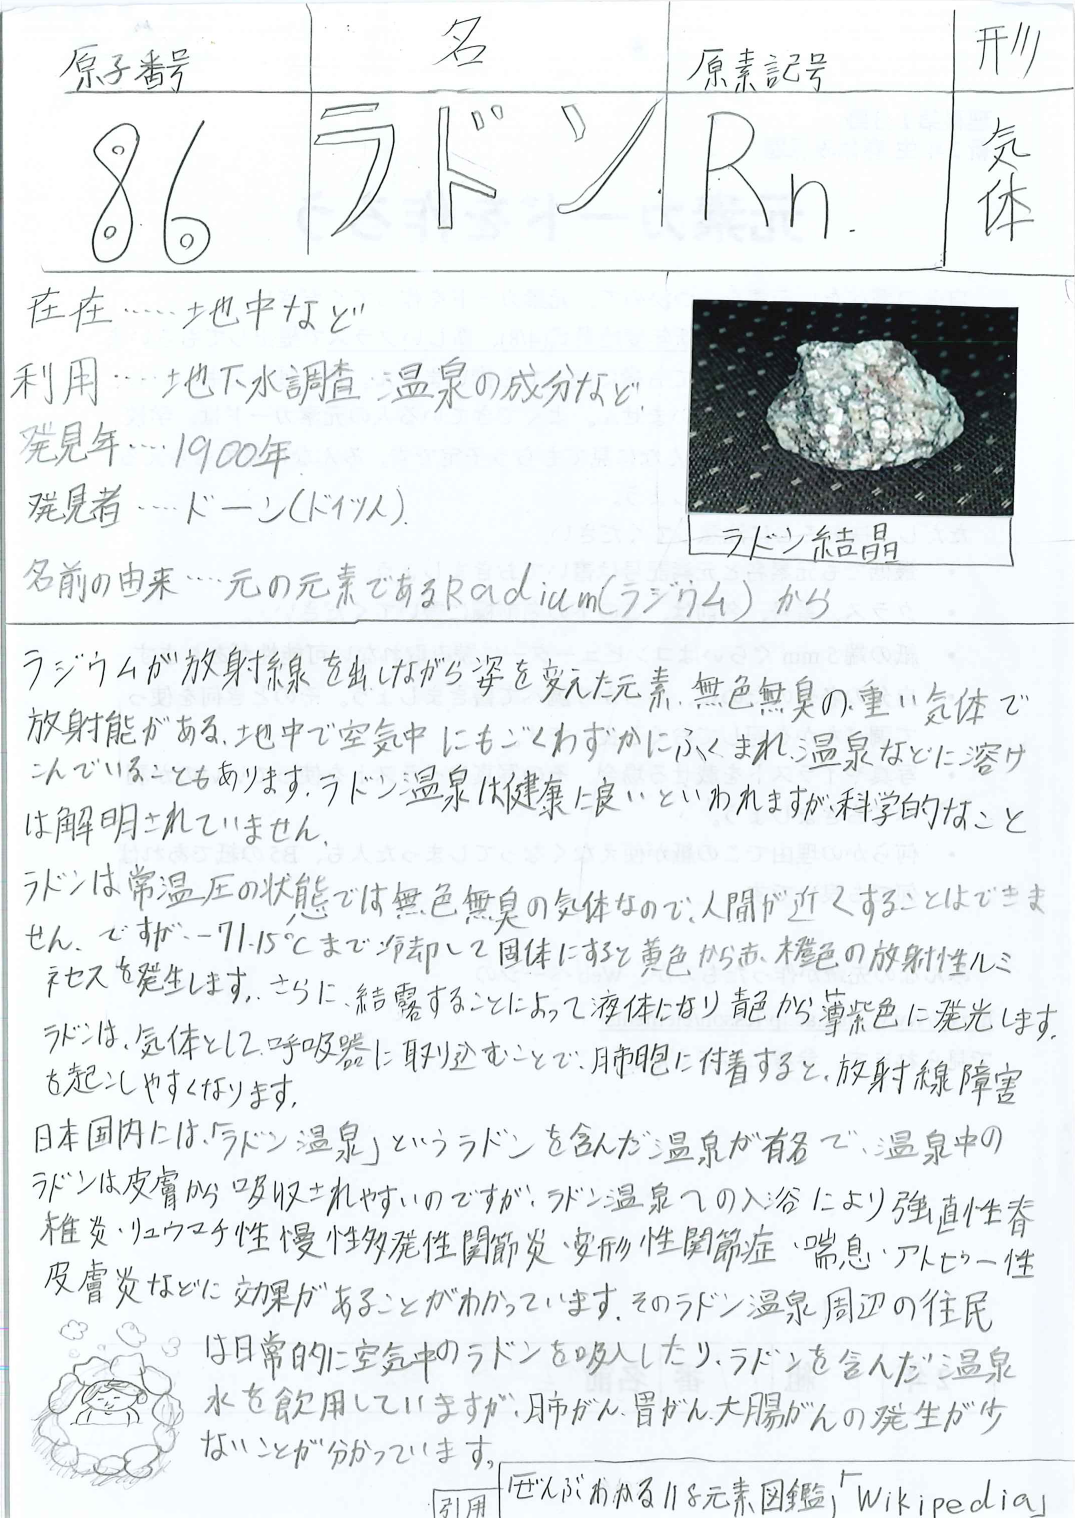 原子番号 名 原素記号 形
86 ラドン Rn. 気体
在在‥‥‥地中など
利用‥‥地下水調査 温泉の成分など
発見年‥‥1900年
発見者‥‥ドーン(ドイツ人).
ラドン結晶
名前の由来‥‥元の元素であるRadium(ラジウム)から
ラジウムが放射線を出しながら姿を変えた元素.無色無臭の、重い気体で
放射能がある、地中で空気中にもごくわずかにふくまれ、温泉などに溶け
こんでいることもあります。ラドン温泉は健康に良いといわれますが、科学的なこと
は解明されていません、
ラドンは常温圧の状態では無色無臭の気体なので、人間が近くすることはできま
せん、ですが、-71.15℃まで冷却して固体にすると黄色から赤、橙色の放射性ルミ
ネセスを発生します。さらに、結露することによって液体になり青色から薄紫色に発光します。
ラドンは、気体として、呼吸器に取り込むことで、肺胞に付着すると、放射線障害
を起こしやすくなります。
日本国内には、「ラドン温泉」というラドンを含んだ温泉が有名で、温泉中の
ラドンは皮膚から吸収されやすいのですが、ラドン温泉への入浴により強直性脊
椎炎・リュウマチ性慢性多発性関節炎・変形性関節症・喘息・アトピー性
皮膚炎などに効果があることがわかっています。そのラドン温泉周辺の住民
は日常的に空気中のラドンを吸入したり、ラドンを含んだ温泉
水を飲用していますが、肺がん、胃がん、大腸がんの発生が少
ないことが分かっています。
引用 「ぜんぶわかる118元素図鑑」「Wikipedia」